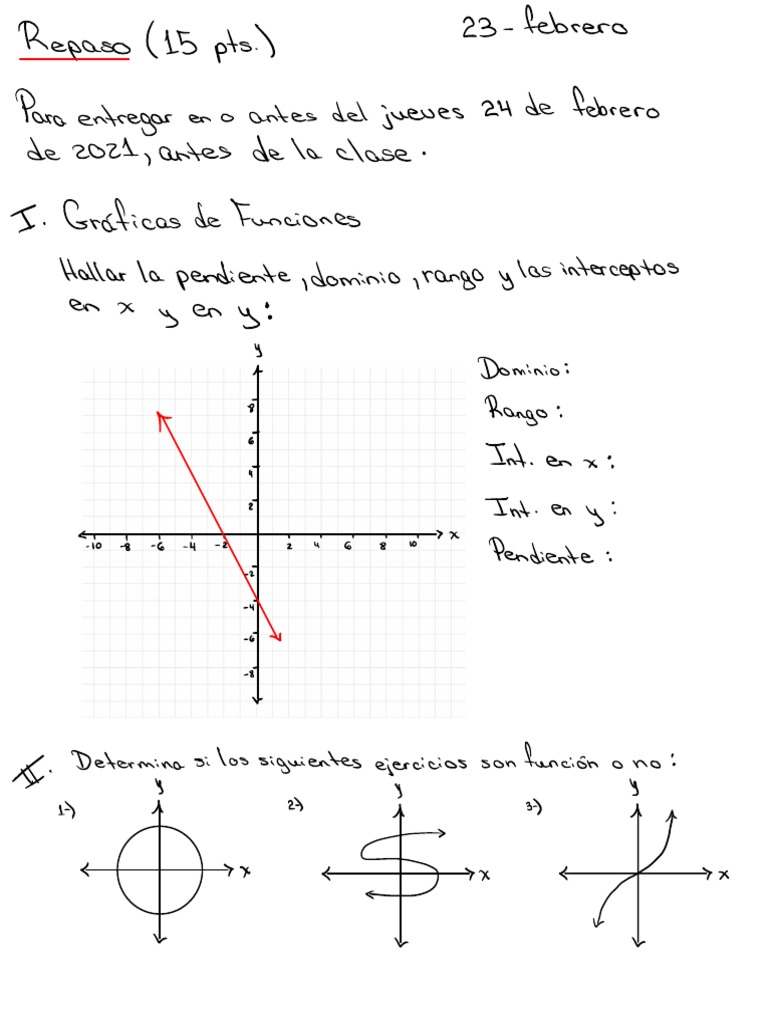 Repaso (15 pts.)
23-febrero
Para entregar en o antes del jueves 24 de febrero
de 2021, antes de la clase.
I. Gráficas de Funciones
Hallar la pendiente, dominio, rango y las interceptos
en x y en y:
y
8
6
4
2
-10 -8 -6 -4 -2 2 4 6 8 10 x
-2
-4
-6
-8
Dominio:
Rango:
Int. en x:
Int. en y:
Pendiente:
II. Determina si los siguientes ejercicios son función o no:
1-) y x
2-) y x
3-) y x